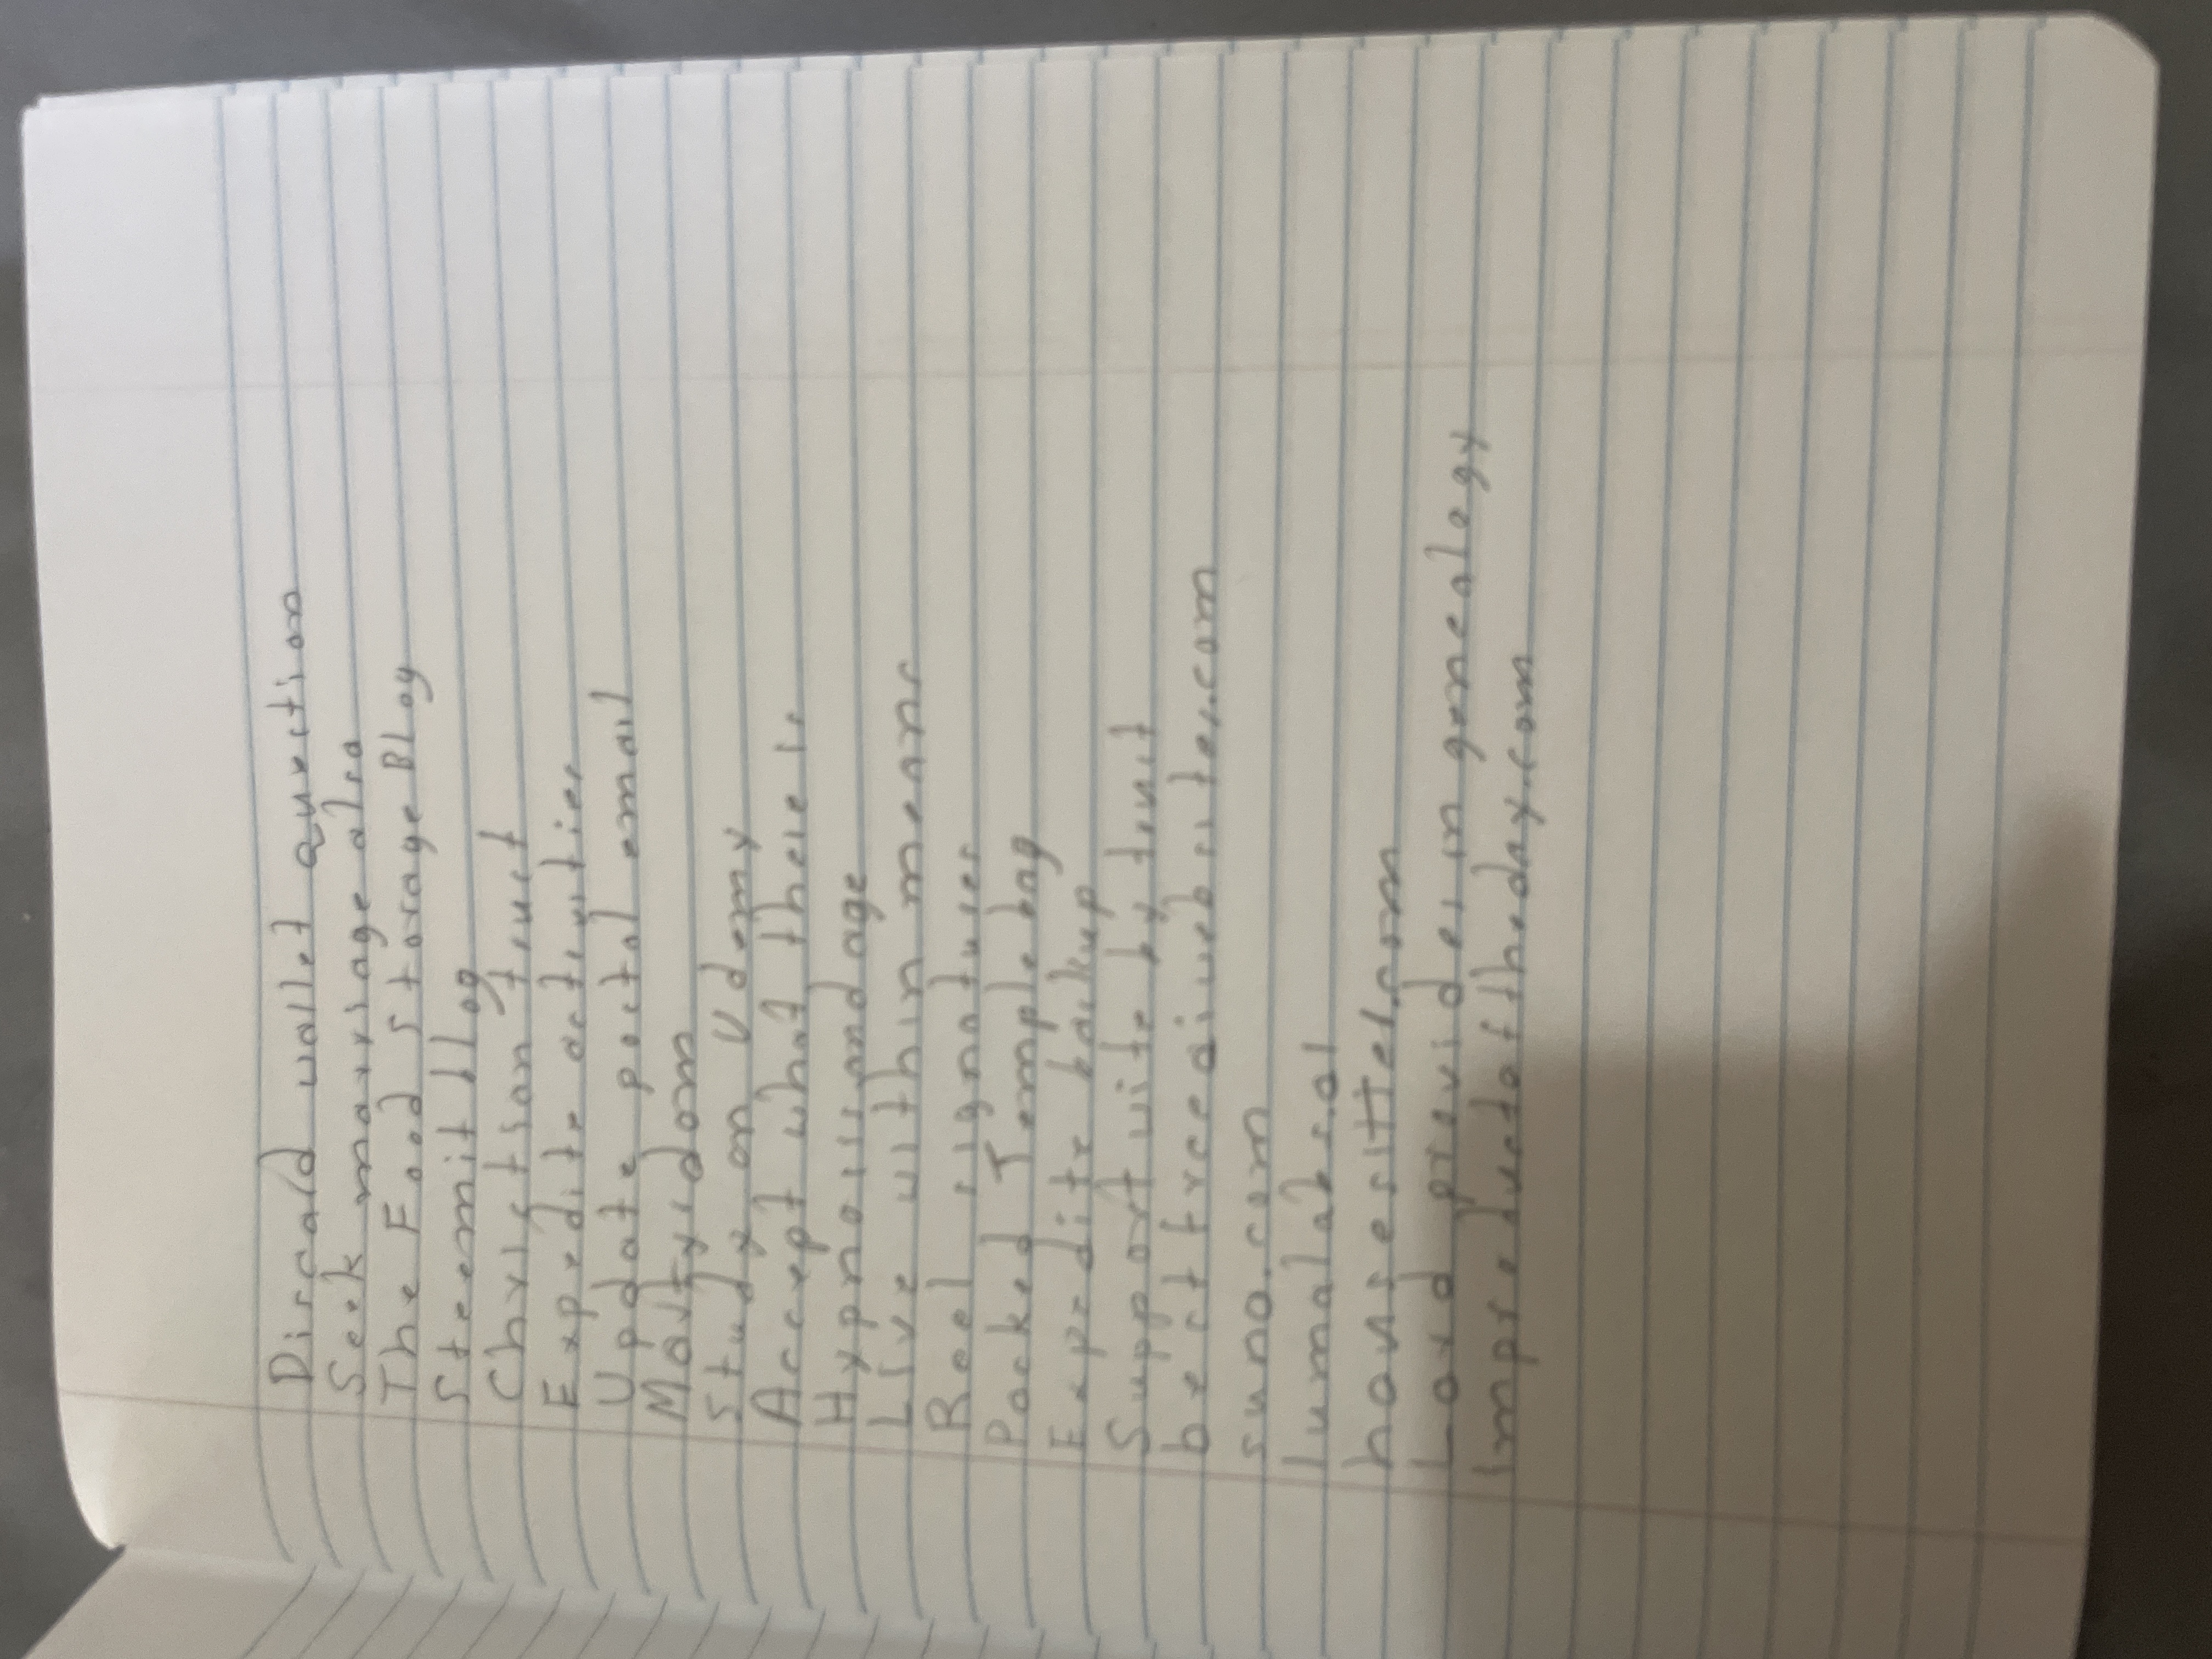 Discard wallet auction
Seek marriage also
The Food Storage Blog
Steemit blog
Christian trust
Expedite activities
Update postal email
Martyrdom
Study on Udemy
Accept what there is
Hypnosis and age
Live within means
Roel signatures
Packed Temple bag
Expedite backup
Support wife by trust
bestfreeaiwebsites.com
suno.com
lumalabs.ai
housesitter.com
Lord provides in genealogy
improductoftheday.com